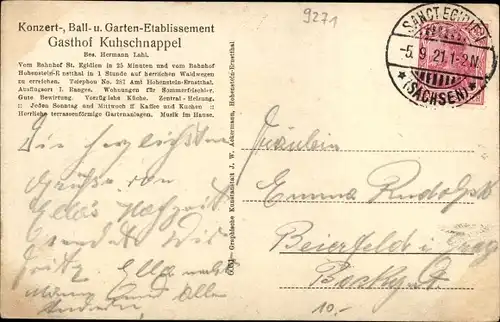 9271
Konzert-, Ball- u. Garten-Etablissement
Gasthof Kuhschnappel
Bes. Hermann Lahl.
Vom Bahnhof St. Egidien in 25 Minuten und vom Bahnhof
Hohenstein-Ernstthal in 1 Stunde auf herrlichen Waldwegen
zu erreichen. Telephon No. 287 Amt Hohenstein-Ernstthal.
Ausflugsort I. Ranges. Wohnungen für Sommerfrischler.
Gute Bewirtung. Vorzügliche Küche. Zentral-Heizung.
:: Jeden Sonntag und Mittwoch ff Kaffee und Kuchen ::
Herrliche terrassenförmige Gartenanlagen. Musik im Hause.
SANCT EGIDIEN
-5.9.21.1-2N.
* (SACHSEN) *
Graphische Kunstanstalt J. W. Ackermann, Hohenstein-Ernstthal
Die herzlichsten
Grüße von
Ella's Hochzeit
sendet Dir
Fritz Ella nebst
Mann und Alle
Anderen
Fräulein
Emma Rudolph
Beierfeld i. Erzg
10.-